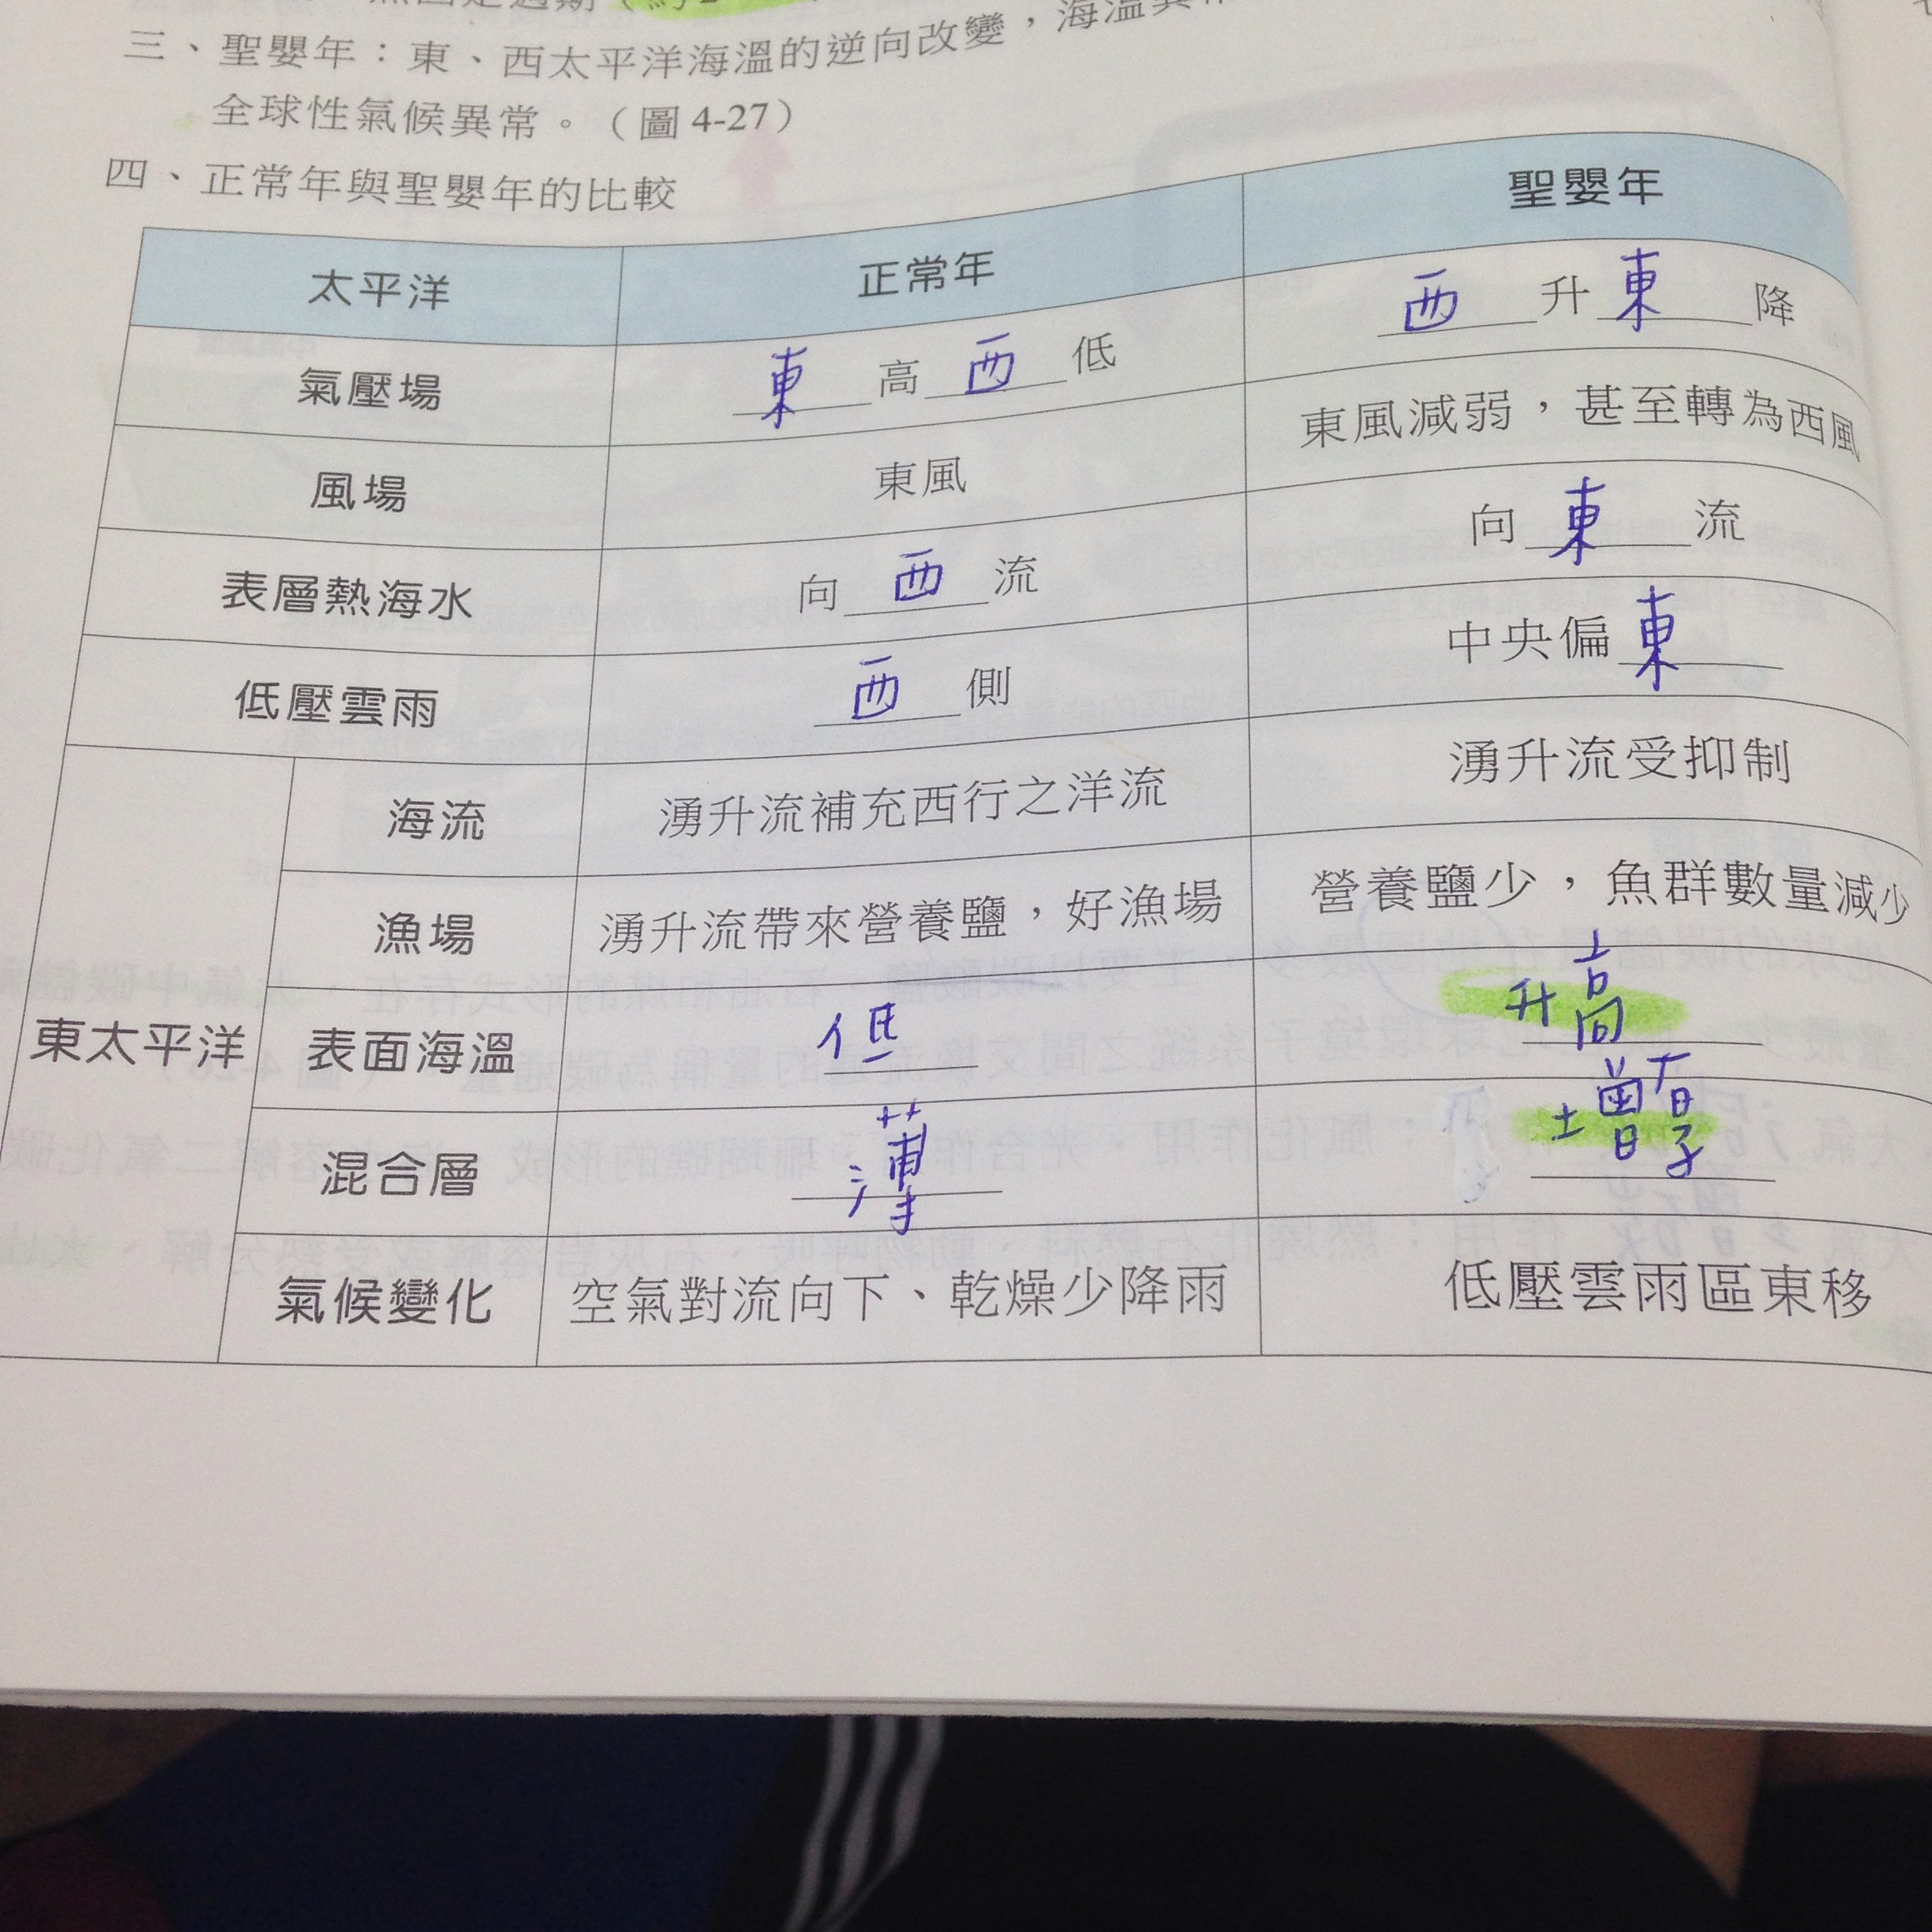 三、聖嬰年：東、西太平洋海溫的逆向改變，海溫異常
全球性氣候異常。（圖 4-27）
四、正常年與聖嬰年的比較
太平洋 正常年 聖嬰年
氣壓場 東高西低 西升東降
風場 東風 東風減弱，甚至轉為西風
表層熱海水 向西流 向東流
低壓雲雨 西側 中央偏東
東太平洋
海流 湧升流補充西行之洋流 湧升流受抑制
漁場 湧升流帶來營養鹽，好漁場 營養鹽少，魚群數量減少
表面海溫 低 升高
混合層 薄 增厚
氣候變化 空氣對流向下、乾燥少降雨 低壓雲雨區東移